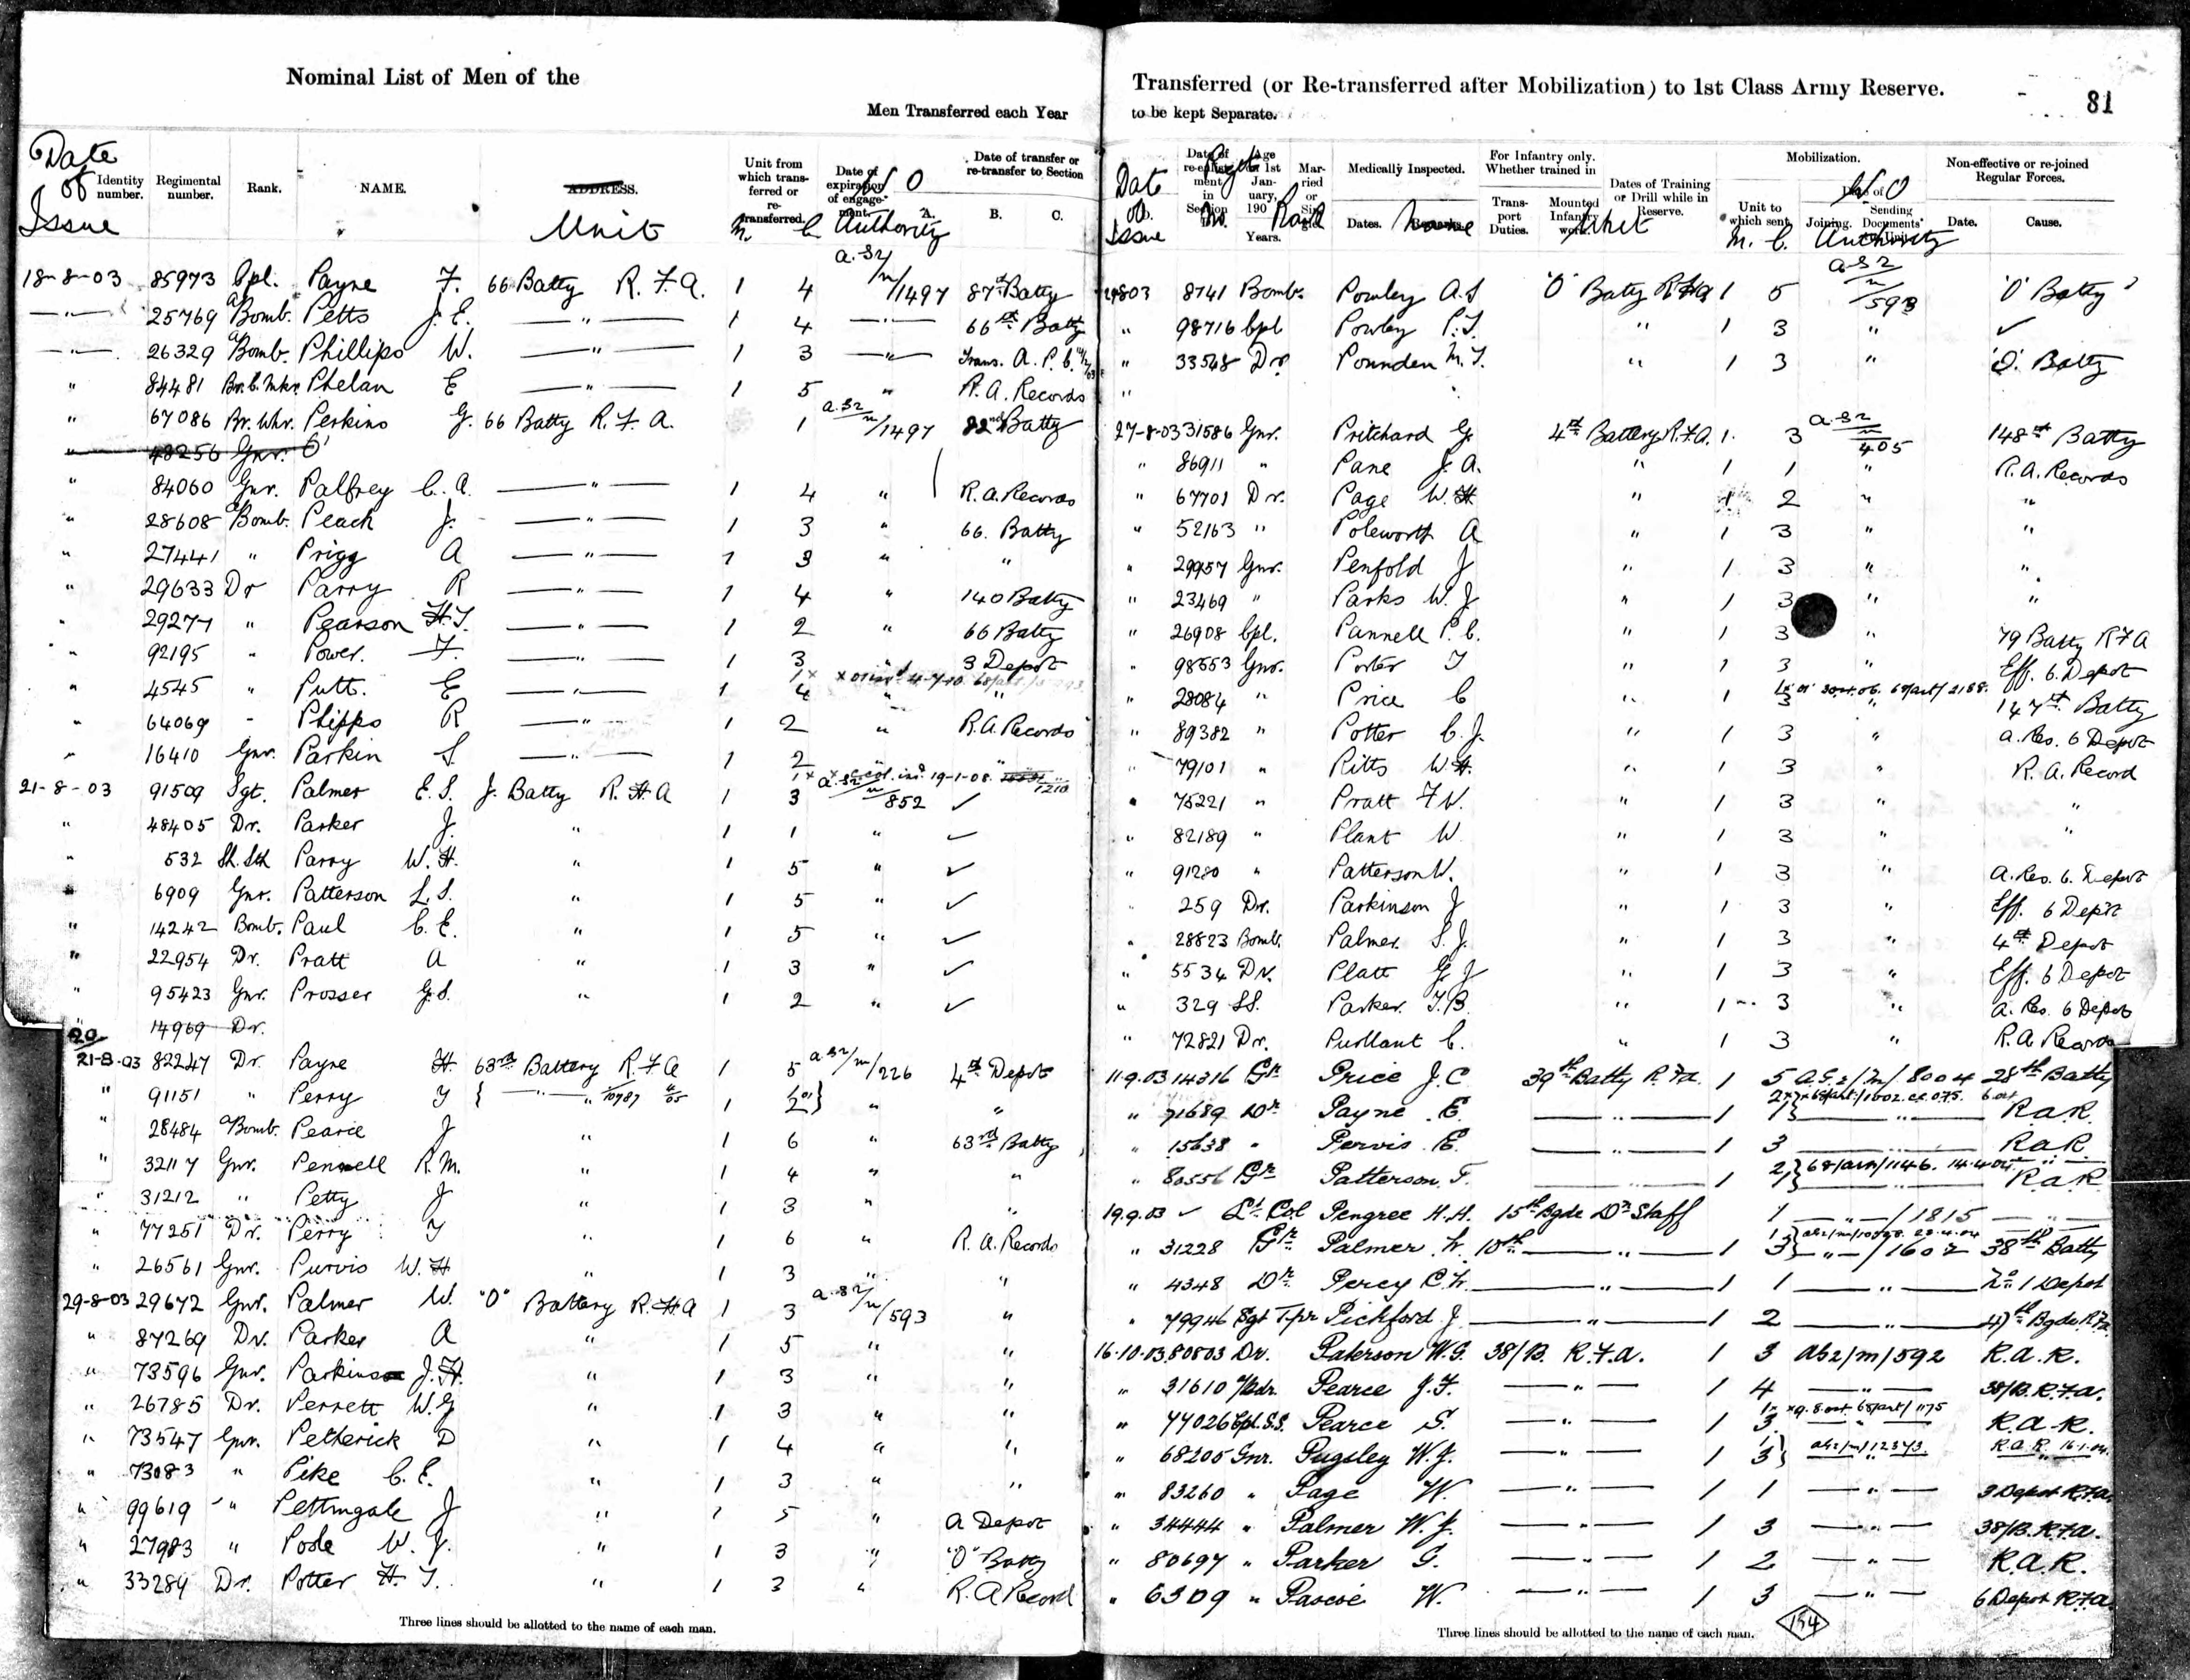 Nominal List of Men of the
Men Transferred each Year
Date of Issue
Identity number.
Regimental number.
Rank.
NAME.
ADDRESS.
Unit
Unit from which transferred or re-transferred.
M. C.
Date of expiration of engagement.
W O
Authority
Date of transfer or re-transfer to Section
A. B. C.
18-8-03 85973 Cpl. Payne F. 66 Batty R.F.A. 1 4 A.32/M/1497 87th Batty
—"— 25769 a/Bomb. Petts J.E. —"— 1 4 —"— 66th Batty
—"— 26329 a/Bomb. Phillips W. —"— 1 3 —"— Trans. A.P.C.
" 84481 Phelan E —"— 1 5 " R.A. Records
" 67086 Br. Whr. Perkins G. 66 Batty R.F.A. 1 A.32/M/1497 82nd Batty
" 48256 Gnr.
" 84060 Gnr. Palfrey C.A. —"— 1 4 " R.A. Records
" 28608 a/Bomb. Peach J. —"— 1 3 " 66. Batty
" 27441 " Prigg A —"— 1 3 " "
" 29633 Dr Parry R —"— 1 4 " 140 Batty
" 29277 " Pearson H.T. —"— 1 2 " 66 Batty
" 92195 " Power. F. —"— 1 3 " 3 Depot
" 4545 " Putt. E —"— 1 4 " "
" 64069 " Phipps R —"— 1 2 " R.A. Records
" 16410 Gnr. Parkin S —"— 1 2 " "
21-8-03 91509 Sgt. Palmer E.S. J. Batty R.H.A 1 3 A.32/M/852 ✓
" 48405 Dr. Parker J. " 1 1 " ✓
" 532 Sh. Sth Parry W.H. " 1 5 " ✓
" 6909 Gnr. Patterson L.S. " 1 5 " ✓
" 14242 Bomb. Paul C.E. " 1 5 " ✓
" 22954 Dr. Pratt A " 1 3 " ✓
" 95423 Gnr. Prosser G.S. " 1 2 " ✓
" 14969 Dr.
21-8-03 82247 Dr. Payne H. 63rd Battery R.F.A 1 5 A.32/M/226 4th Depot
" 91151 " Perry T —"— 1 2 " "
" 28484 a/Bomb. Pearce J " 1 6 " 63rd Batty
" 32117 Gnr. Pennell R.M. " 1 4 " "
" 31212 " Petty J " 1 3 " "
" 77251 Dr. Perry T " 1 6 " R.A. Records
" 26561 Gnr. Purvis W.H " 1 3 " "
29-8-03 29672 Gnr. Palmer W. "O" Battery R.H.A 1 3 A.32/M/593 "
" 87269 Dr. Parker A " 1 5 " "
" 73596 Gnr. Parkinson J.H. " 1 3 " "
" 26785 Dr. Perrett W.G " 1 3 " "
" 73547 Gnr. Petherick D " 1 4 " "
" 73083 " Pike C.E. " 1 3 " "
" 99619 " Pettingale J " 1 5 " A Depot
" 27983 " Poole W.J. " 1 3 " "O" Batty
" 33289 Dr. Potter H.T. " 1 3 " R.A Record
Three lines should be allotted to the name of each man.
Transferred (or Re-transferred after Mobilization) to 1st Class Army Reserve.
81
to be kept Separate.
Date of Issue
Date of re-enlistment in Section
Regtl No.
Age on 1st January, 190
Years.
Married or Single
Rank
Medically Inspected.
Dates. Remarks.
Name
For Infantry only. Whether trained in
Transport Duties.
Mounted Infantry work.
Dates of Training or Drill while in Reserve.
Unit
Mobilization.
Unit to which sent.
M. C.
Date of
Joining.
Sending Documents to Unit.
W O
Authority
Non-effective or re-joined Regular Forces.
Date.
Cause.
29-8-03 8741 Bomb. Powley A.S 'O' Batty R.H.A 1 5 A.32/M/593 'O' Batty
" 98716 Cpl Powley P.T. " 1 3 " ✓
" 33548 Dr Pounden M.T. " 1 3 " 'O'. Batty
27-8-03 31586 Gnr. Pritchard G. 4th Battery R.F.A. 1 3 A.32/M/405 148th Batty
" 86911 " Pane J.A. " 1 1 " R.A. Records
" 67701 Dr. Page W.H. " 1 2 " "
" 52163 " Poleworth A " 1 3 " "
" 29957 Gnr. Penfold J " 1 3 " "
" 23469 " Parks W.J " 1 3 " "
" 26908 Cpl. Pannell P.C. " 1 3 " 79 Batty R.F.A
" 98553 Gnr. Porter T " 1 3 " Eff. 6. Depot
" 28084 " Price C " 1 3 " 147th Batty
" 89382 " Potter C.J. " 1 3 " A. Res. 6 Depot
" 79101 " Pitts W.H. " 1 3 " R.A. Record
" 75221 " Pratt F.W. " 1 3 " "
" 82189 " Plant W. " 1 3 " "
" 91280 " Patterson W. " 1 3 " A. Res. 6. Depot
" 259 Dr. Parkinson J " 1 3 " Eff. 6 Depot
" 28823 Bomb. Palmer. S.J. " 1 3 " 4th Depot
" 5534 Dr. Platt G.J " 1 3 " Eff. 6 Depot
" 329 SS. Parker. T.B " 1 3 " A. Res. 6 Depot
" 72821 Dr. Pullant C. " 1 3 " R.A. Records
11.9.03 14316 Gr Price J.C 39th Batty R.F.A. 1 5 A.32/M/8004 28th Batty
" 71689 Dr Payne E. —"— 1 1 —"— R.A.R.
" 15638 " Pervis E. —"— 1 3 —"— R.A.R.
" 80556 Gr Patterson. T. —"— 1 1 —"— R.A.R.
19.9.03 ✓ Lt Col Pengree H.H. 15th Bgde Dn Staff 1 —"—/1815 —"—
" 31228 Gr Palmer. W. 10th —"— 1 3 —"—/1602 38th Batty
" 4348 Dr Percy C.W. —"— 1 1 —"— No 1 Depot
" 79946 Sgt Tptr Pickford J. —"— 1 2 —"— 47th Bgde R.F.A.
16.10.03 80803 Dr. Paterson W.G. 38/B. R.F.A. 1 3 AB2/M/592 R.A.R.
" 31610 a/Bdr. Pearce J.F. —"— 1 4 —"— 38/B. R.F.A.
" 77026 Cpl. S.S. Pearce S. —"— 1 3 —"— R.A.R.
" 68205 Gnr. Pugsley W.J. —"— 1 3 —"— R.A.R. 16.1.04.
" 83260 " Page W. —"— 1 1 —"— 3 Depot R.F.A.
" 34444 " Palmer W.J. —"— 1 3 —"— 38/B. R.F.A.
" 80697 " Parker G. —"— 1 2 —"— R.A.R.
" 6309 " Pascoe W. —"— 1 3 —"— 6 Depot R.F.A.
154
Three lines should be allotted to the name of each man.